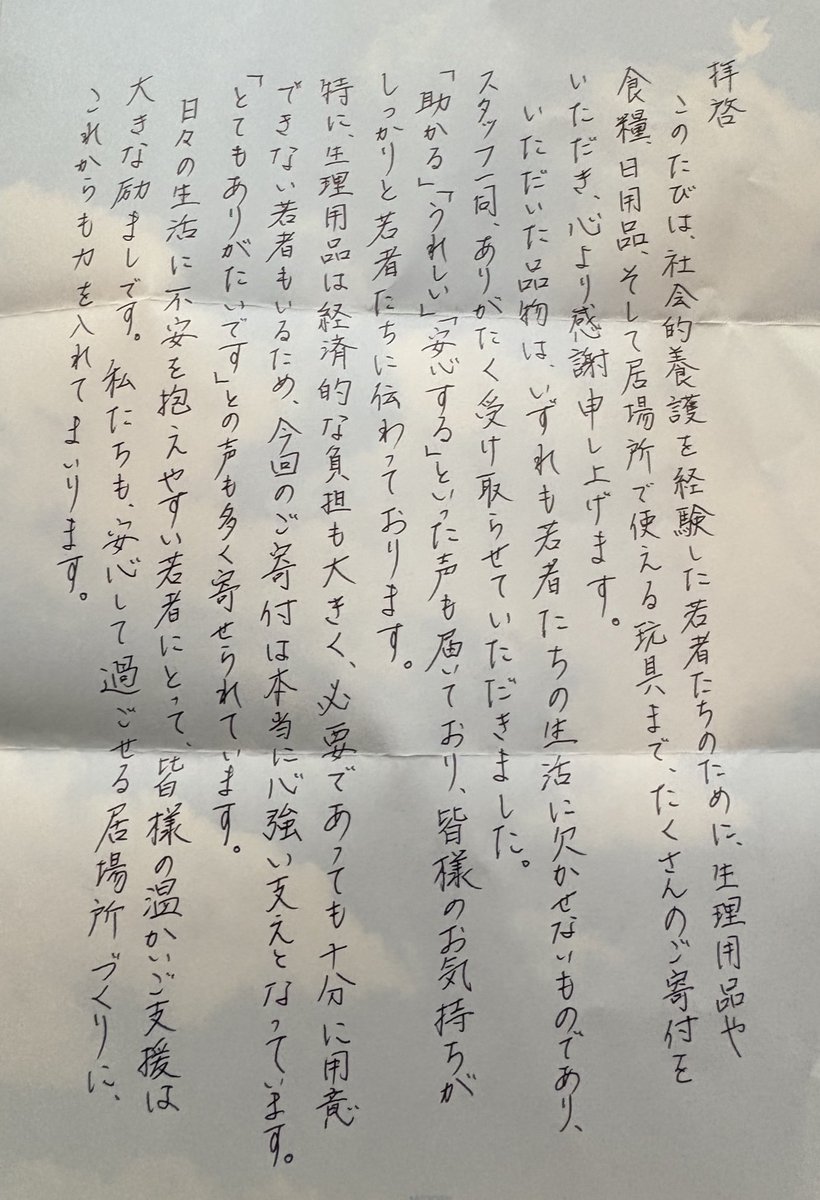 拝啓
このたびは、社会的養護を経験した若者たちのために、生理用品や
食糧、日用品、そして居場所で使える玩具まで、たくさんのご寄付を
いただき、心より感謝申し上げます。
いただいた品物は、いずれも若者たちの生活に欠かせないものであり、
スタッフ一同、ありがたく受け取らせていただきました。
「助かる」「うれしい」「安心する」といった声も届いており、皆様のお気持ちが
しっかりと若者たちに伝わっております。
特に、生理用品は経済的な負担も大きく、必要であっても十分に用意
できない若者もいるため、今回のご寄付は本当に心強い支えとなっています。
「とてもありがたいです」との声も多く寄せられています。
日々の生活に不安を抱えやすい若者にとって、皆様の温かいご支援は
大きな励ましです。私たちも、安心して過ごせる居場所づくりに、
これからも力を入れてまいります。